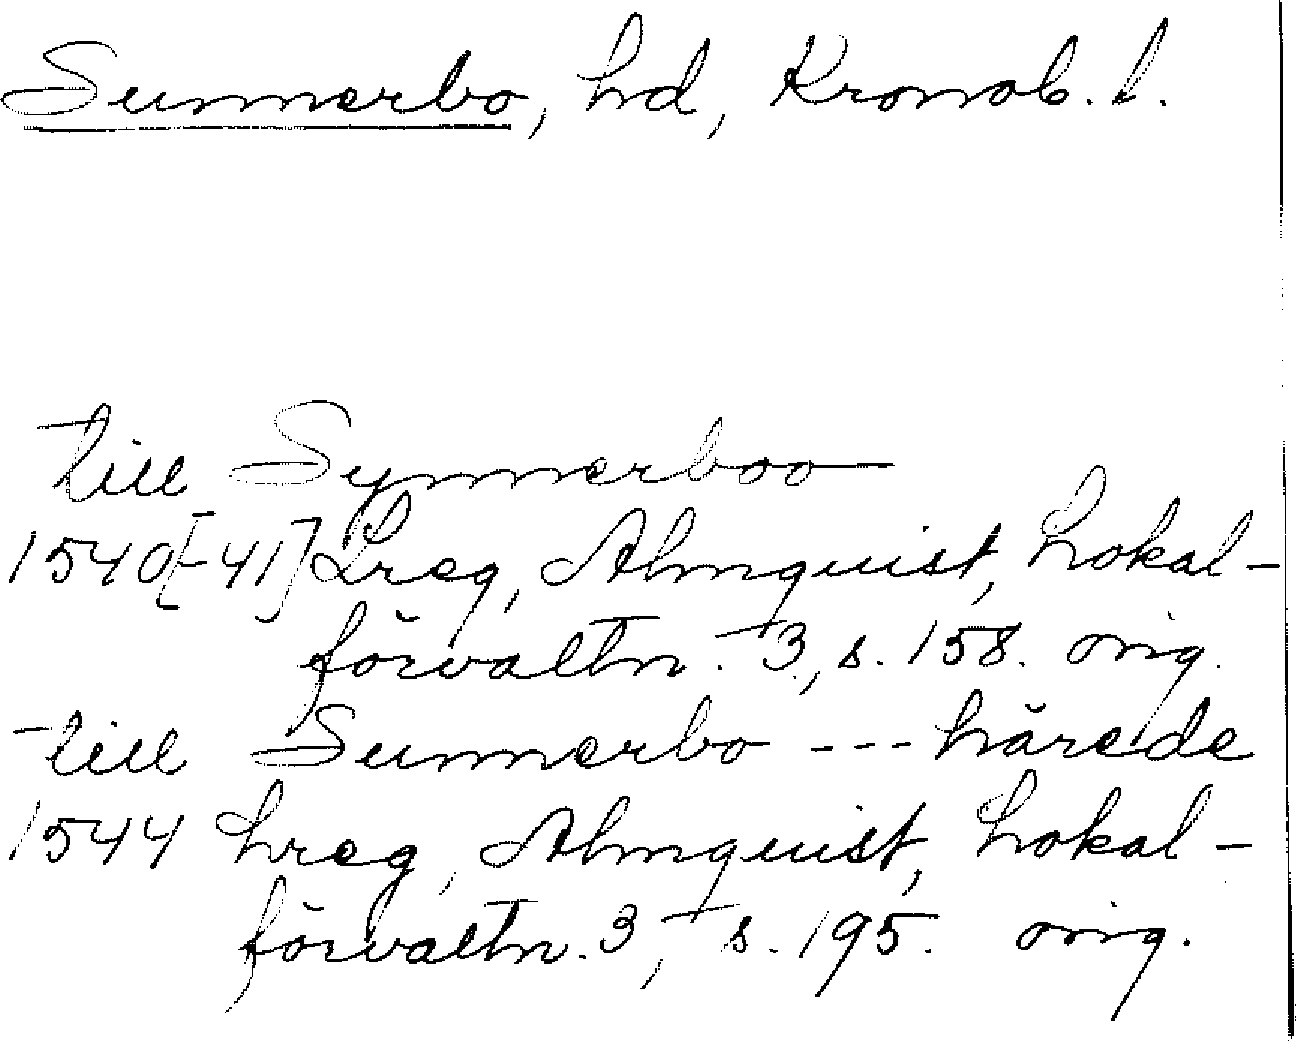 Sunnerbo, hd, Kronob. l.
till Synnerboo
1540[-41] Lreg, Almquist, Lokal-
förvaltn. 3, s. 158. orig.
till Sunnerbo --- härede
1544 Lreg, Almquist, Lokal-
förvaltn. 3, s. 195. orig.